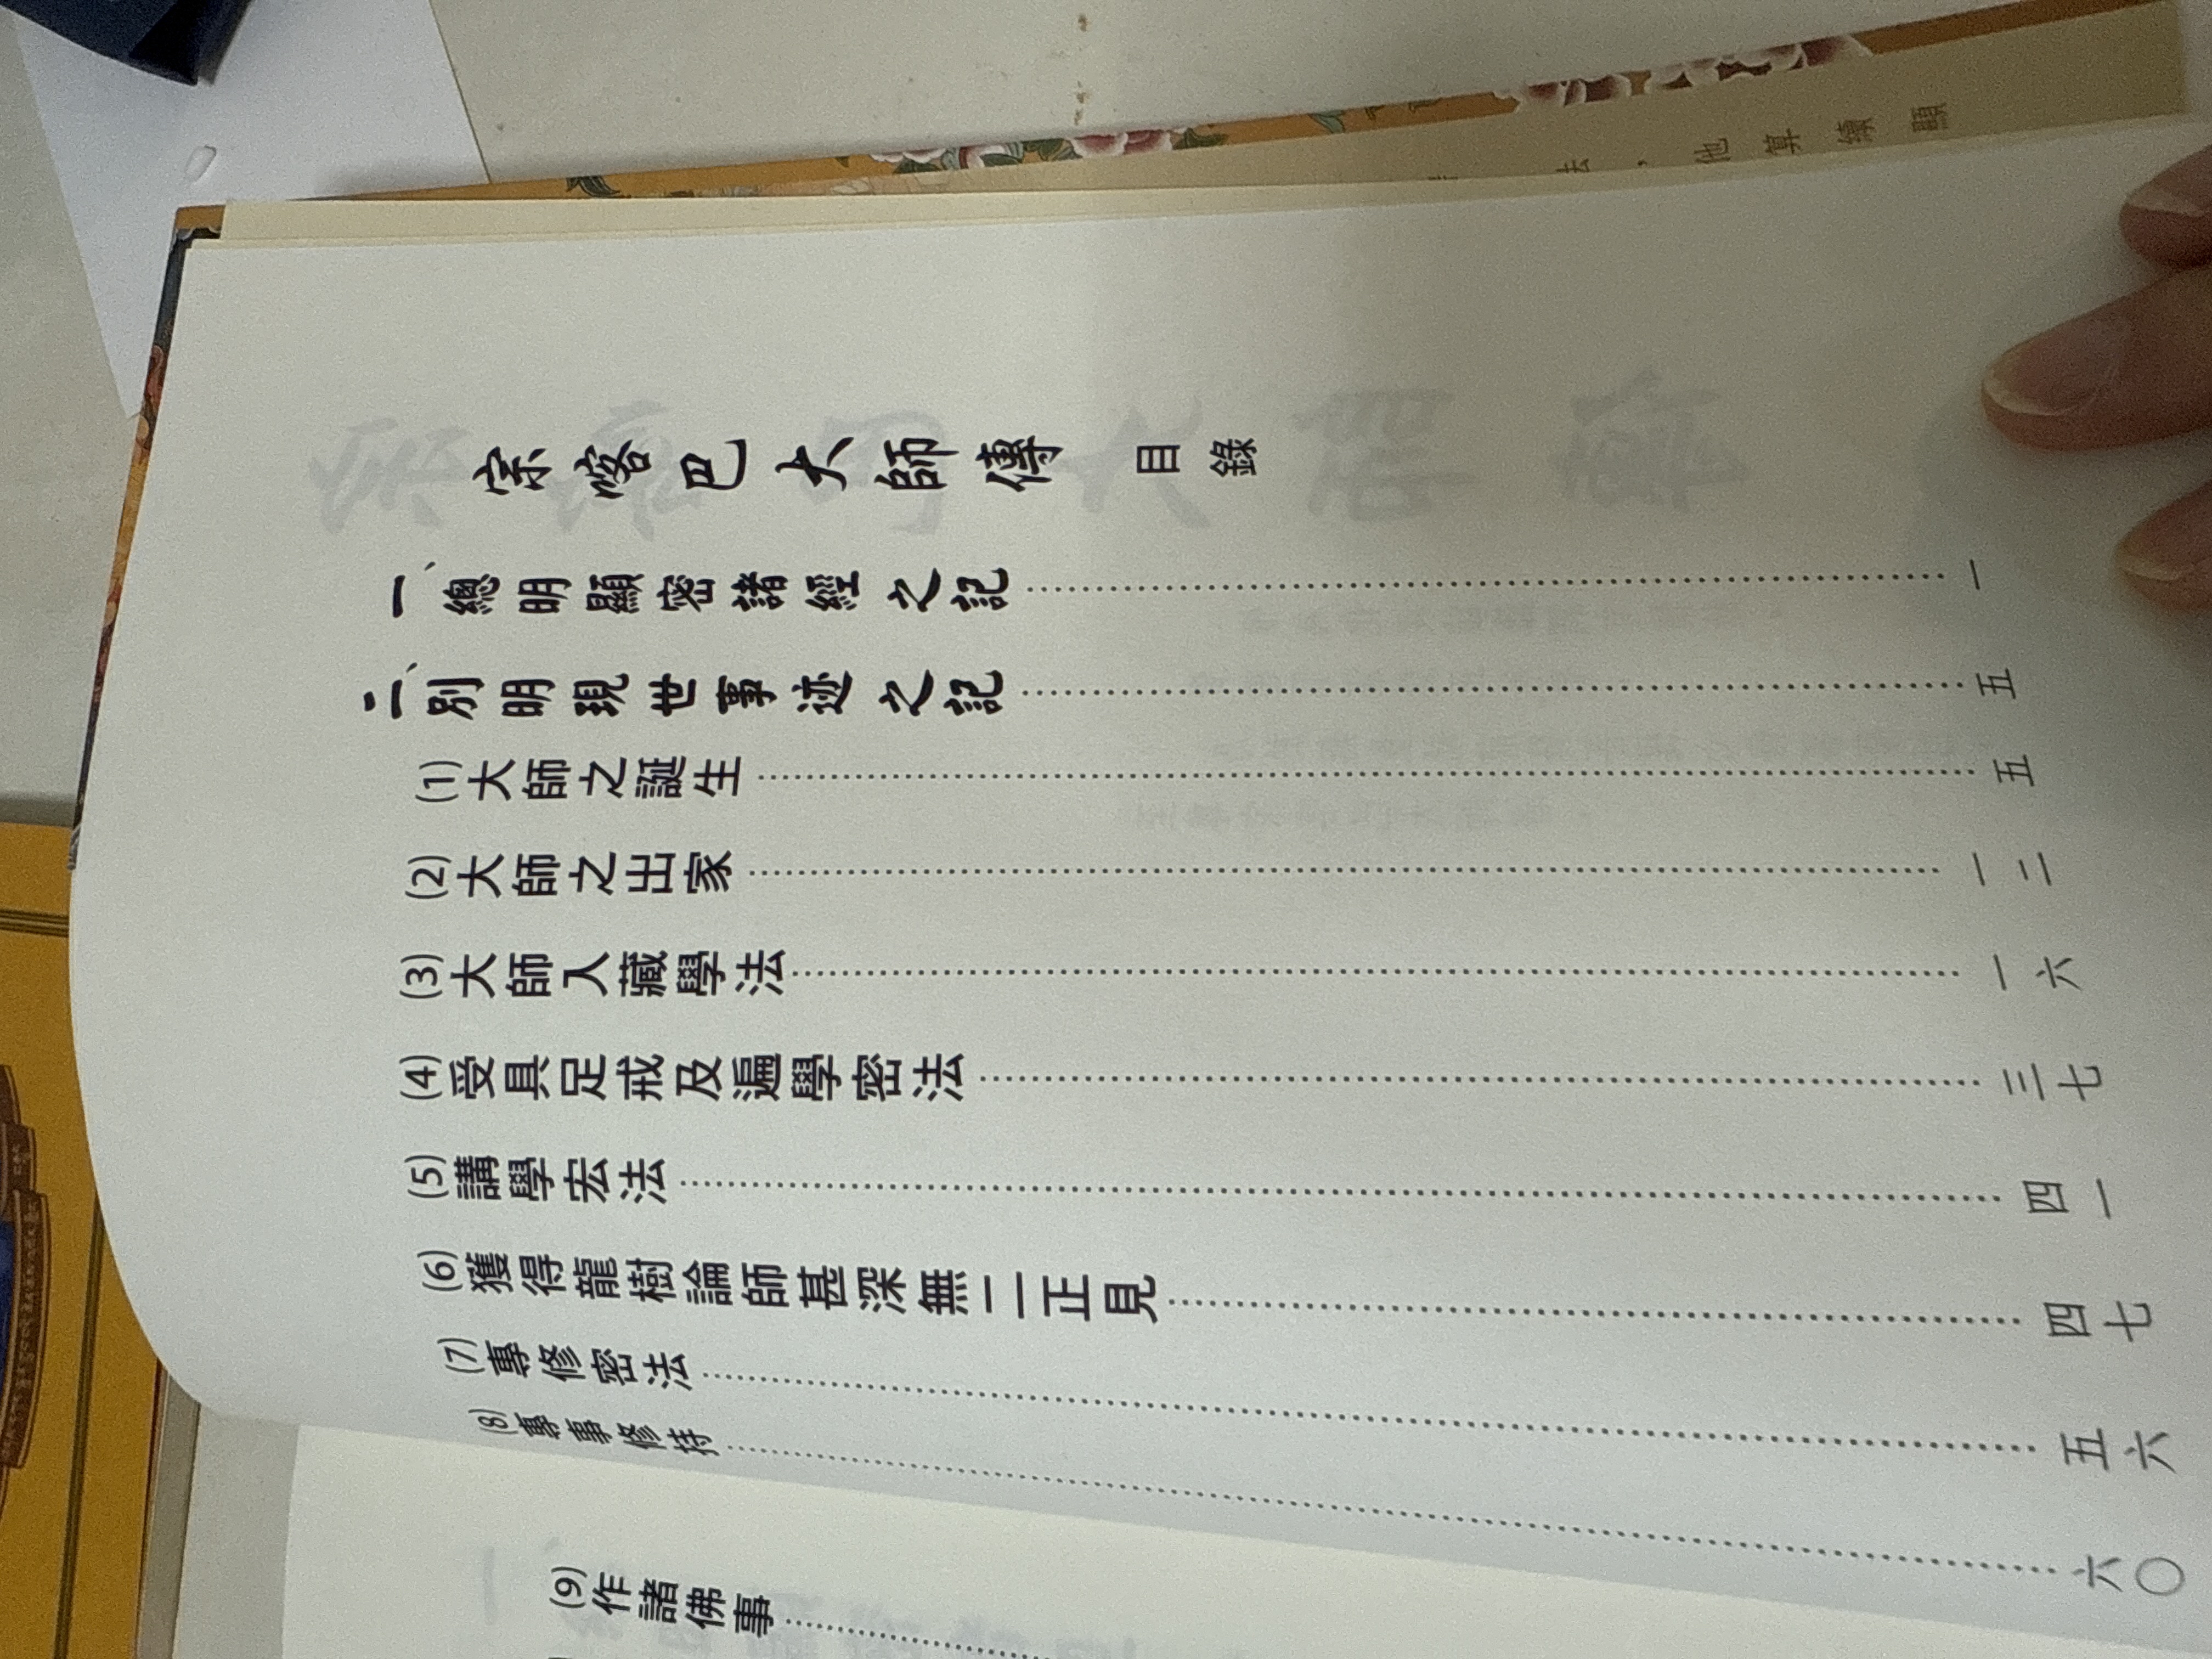 宗喀巴大師傳 目錄
一、總明顯密諸經之記⋯⋯一
二、別明現世事迹之記⋯⋯五
(1)大師之誕生⋯⋯五
(2)大師之出家⋯⋯一二
(3)大師入藏學法⋯⋯一六
(4)受具足戒及遍學密法⋯⋯三七
(5)講學宏法⋯⋯四一
(6)獲得龍樹論師甚深無二正見⋯⋯四七
(7)專修密法⋯⋯五六
(8)專事修持⋯⋯六〇
(9)作諸佛事⋯⋯
法，他算緣顯